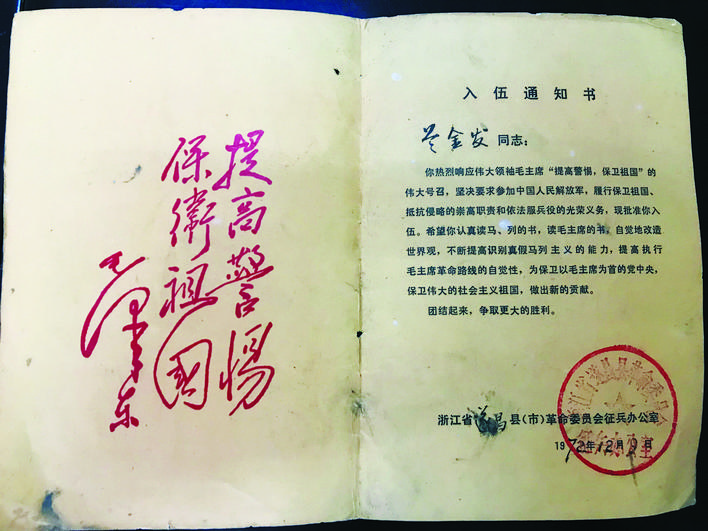 提高警惕
保衛祖國
毛泽东
入伍通知书
金发 同志：
你热烈响应伟大领袖毛主席“提高警惕，保卫祖国”的
伟大号召，坚决要求参加中国人民解放军，履行保卫祖国、
抵抗侵略的崇高职责和依法服兵役的光荣义务，现批准你入
伍。希望你认真读马、列的书，读毛主席的书，自觉地改造
世界观，不断提高识别真假马列主义的能力，提高执行
毛主席革命路线的自觉性，为保卫以毛主席为首的党中央，
保卫伟大的社会主义祖国，做出新的贡献。
团结起来，争取更大的胜利。
浙江省遂昌县（市）革命委员会征兵办公室
1972年12月 日
浙江省遂昌县革命委员会
征兵办公室